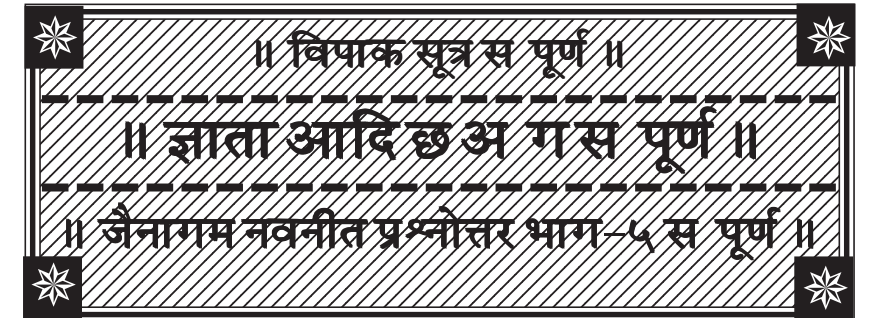 ॥ विपाक सूत्र स पूर्ण ॥
॥ ज्ञाता आदि छ अ ग स पूर्ण ॥
॥ जैनागम नवनीत प्रश्नोत्तर भाग–५ स पूर्ण ॥